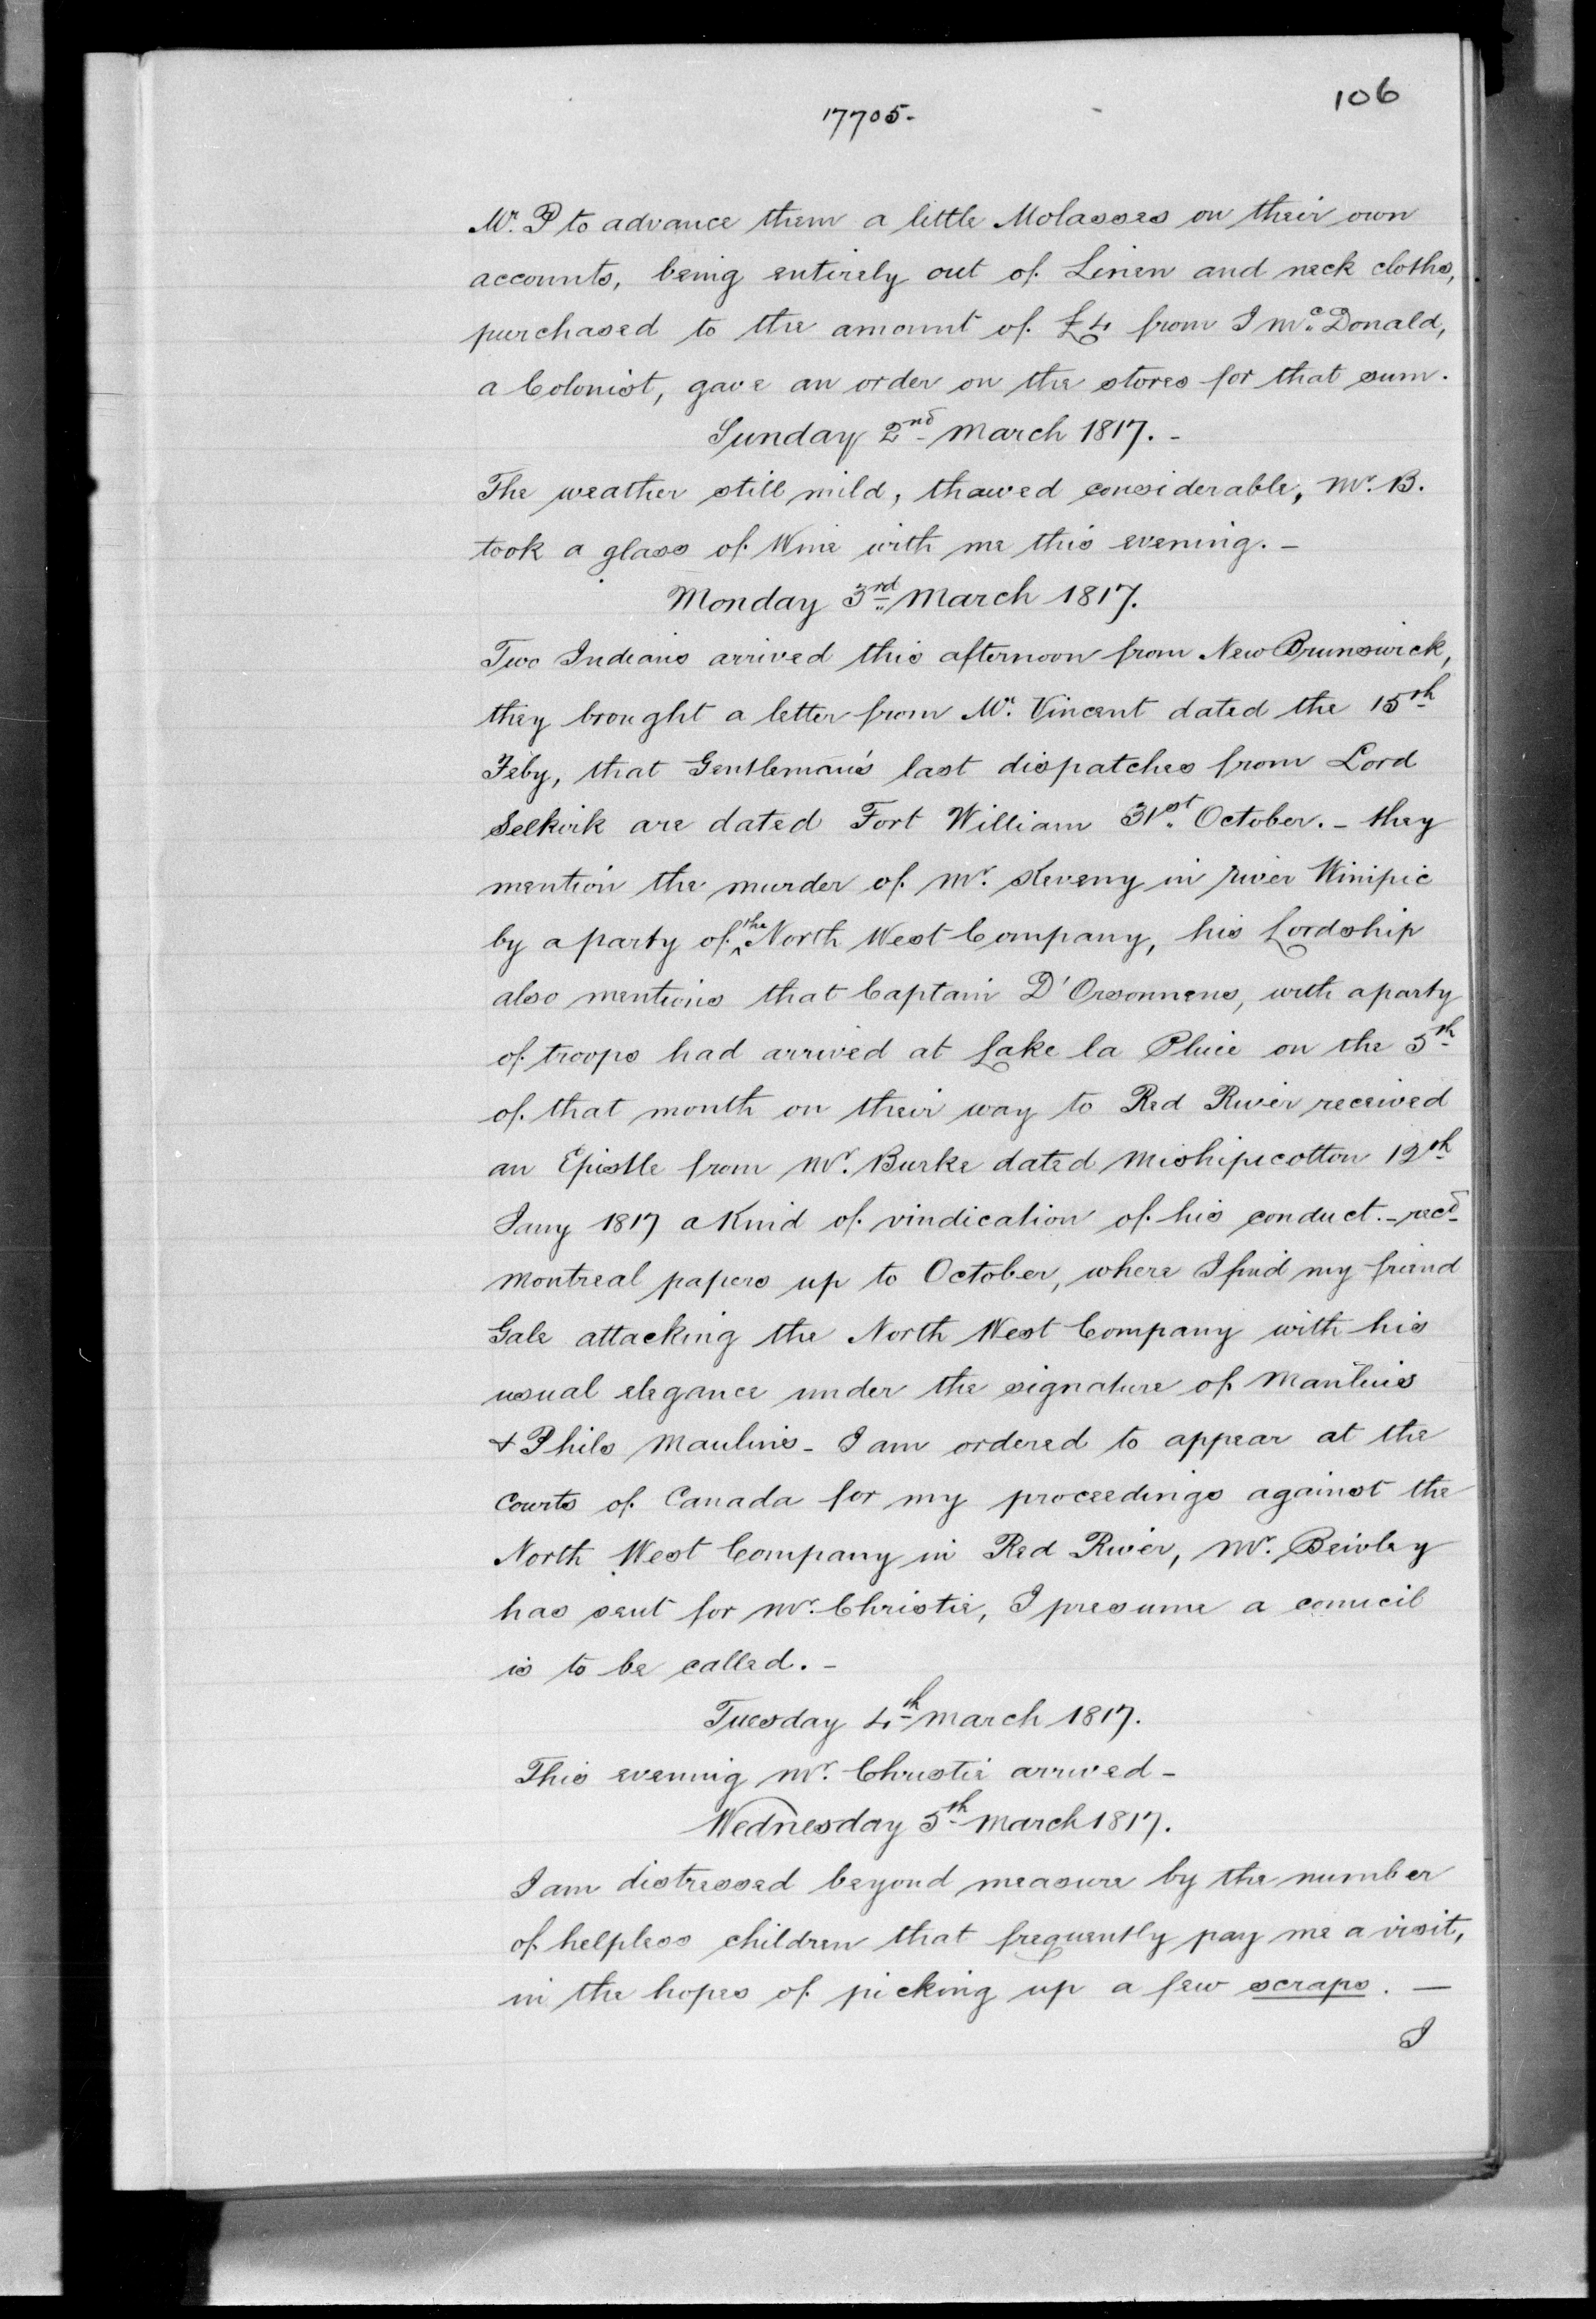 106
17705.
Mr. P to advance them a little Molasses on their own
accounts, being entirely out of Linen and neck cloths,
purchased to the amount of £4 from J McDonald,
a Colonist, gave an order on the stores for that sum.
Sunday 2nd March 1817. -
The weather still mild, thawed considerable, Mr. B.
took a glass of Wine with me this evening. -
Monday 3rd March 1817.
Two Indians arrived this afternoon from New Brunswick,
they brought a letter from Mr. Vincent dated the 15th
Feby, that Gentleman's last dispatches from Lord
Selkirk are dated Fort William 31st October. - they
mention the murder of Mr. Keveny in river Winipic
by a party of the North West Company, his Lordship
also mentions that Captain D'Orsonnens, with a party
of troops had arrived at Lake la Pluie on the 5th
of that month on their way to Red River received
an Epistle from Mr. Burke dated Mishipicotton 12th
Jany 1817 a Kind of vindication of his conduct. - recd
Montreal papers up to October, where I find my friend
Gale attacking the North West Company with his
usual elegance under the signature of Manlius
& Philo Manlius - I am ordered to appear at the
Courts of Canada for my proceedings against the
North West Company in Red River, Mr. Beivley
has sent for Mr. Christie, I presume a council
is to be called. -
Tuesday 4th March 1817.
This evening Mr. Christie arrived -
Wednesday 5th March 1817.
I am distressed beyond measure by the number
of helpless children that frequently pay me a visit,
in the hopes of picking up a few scraps. —
I